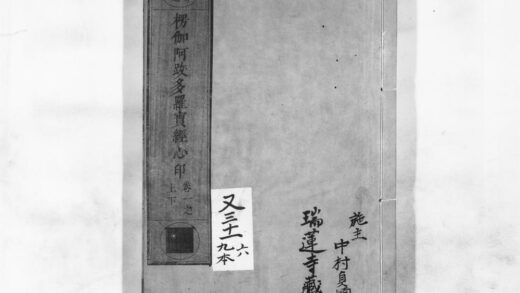 楞伽阿跋多羅寶經心印
卷一之
上下
又三十一
六
九本
施主
中村貞
瑞蓮寺藏